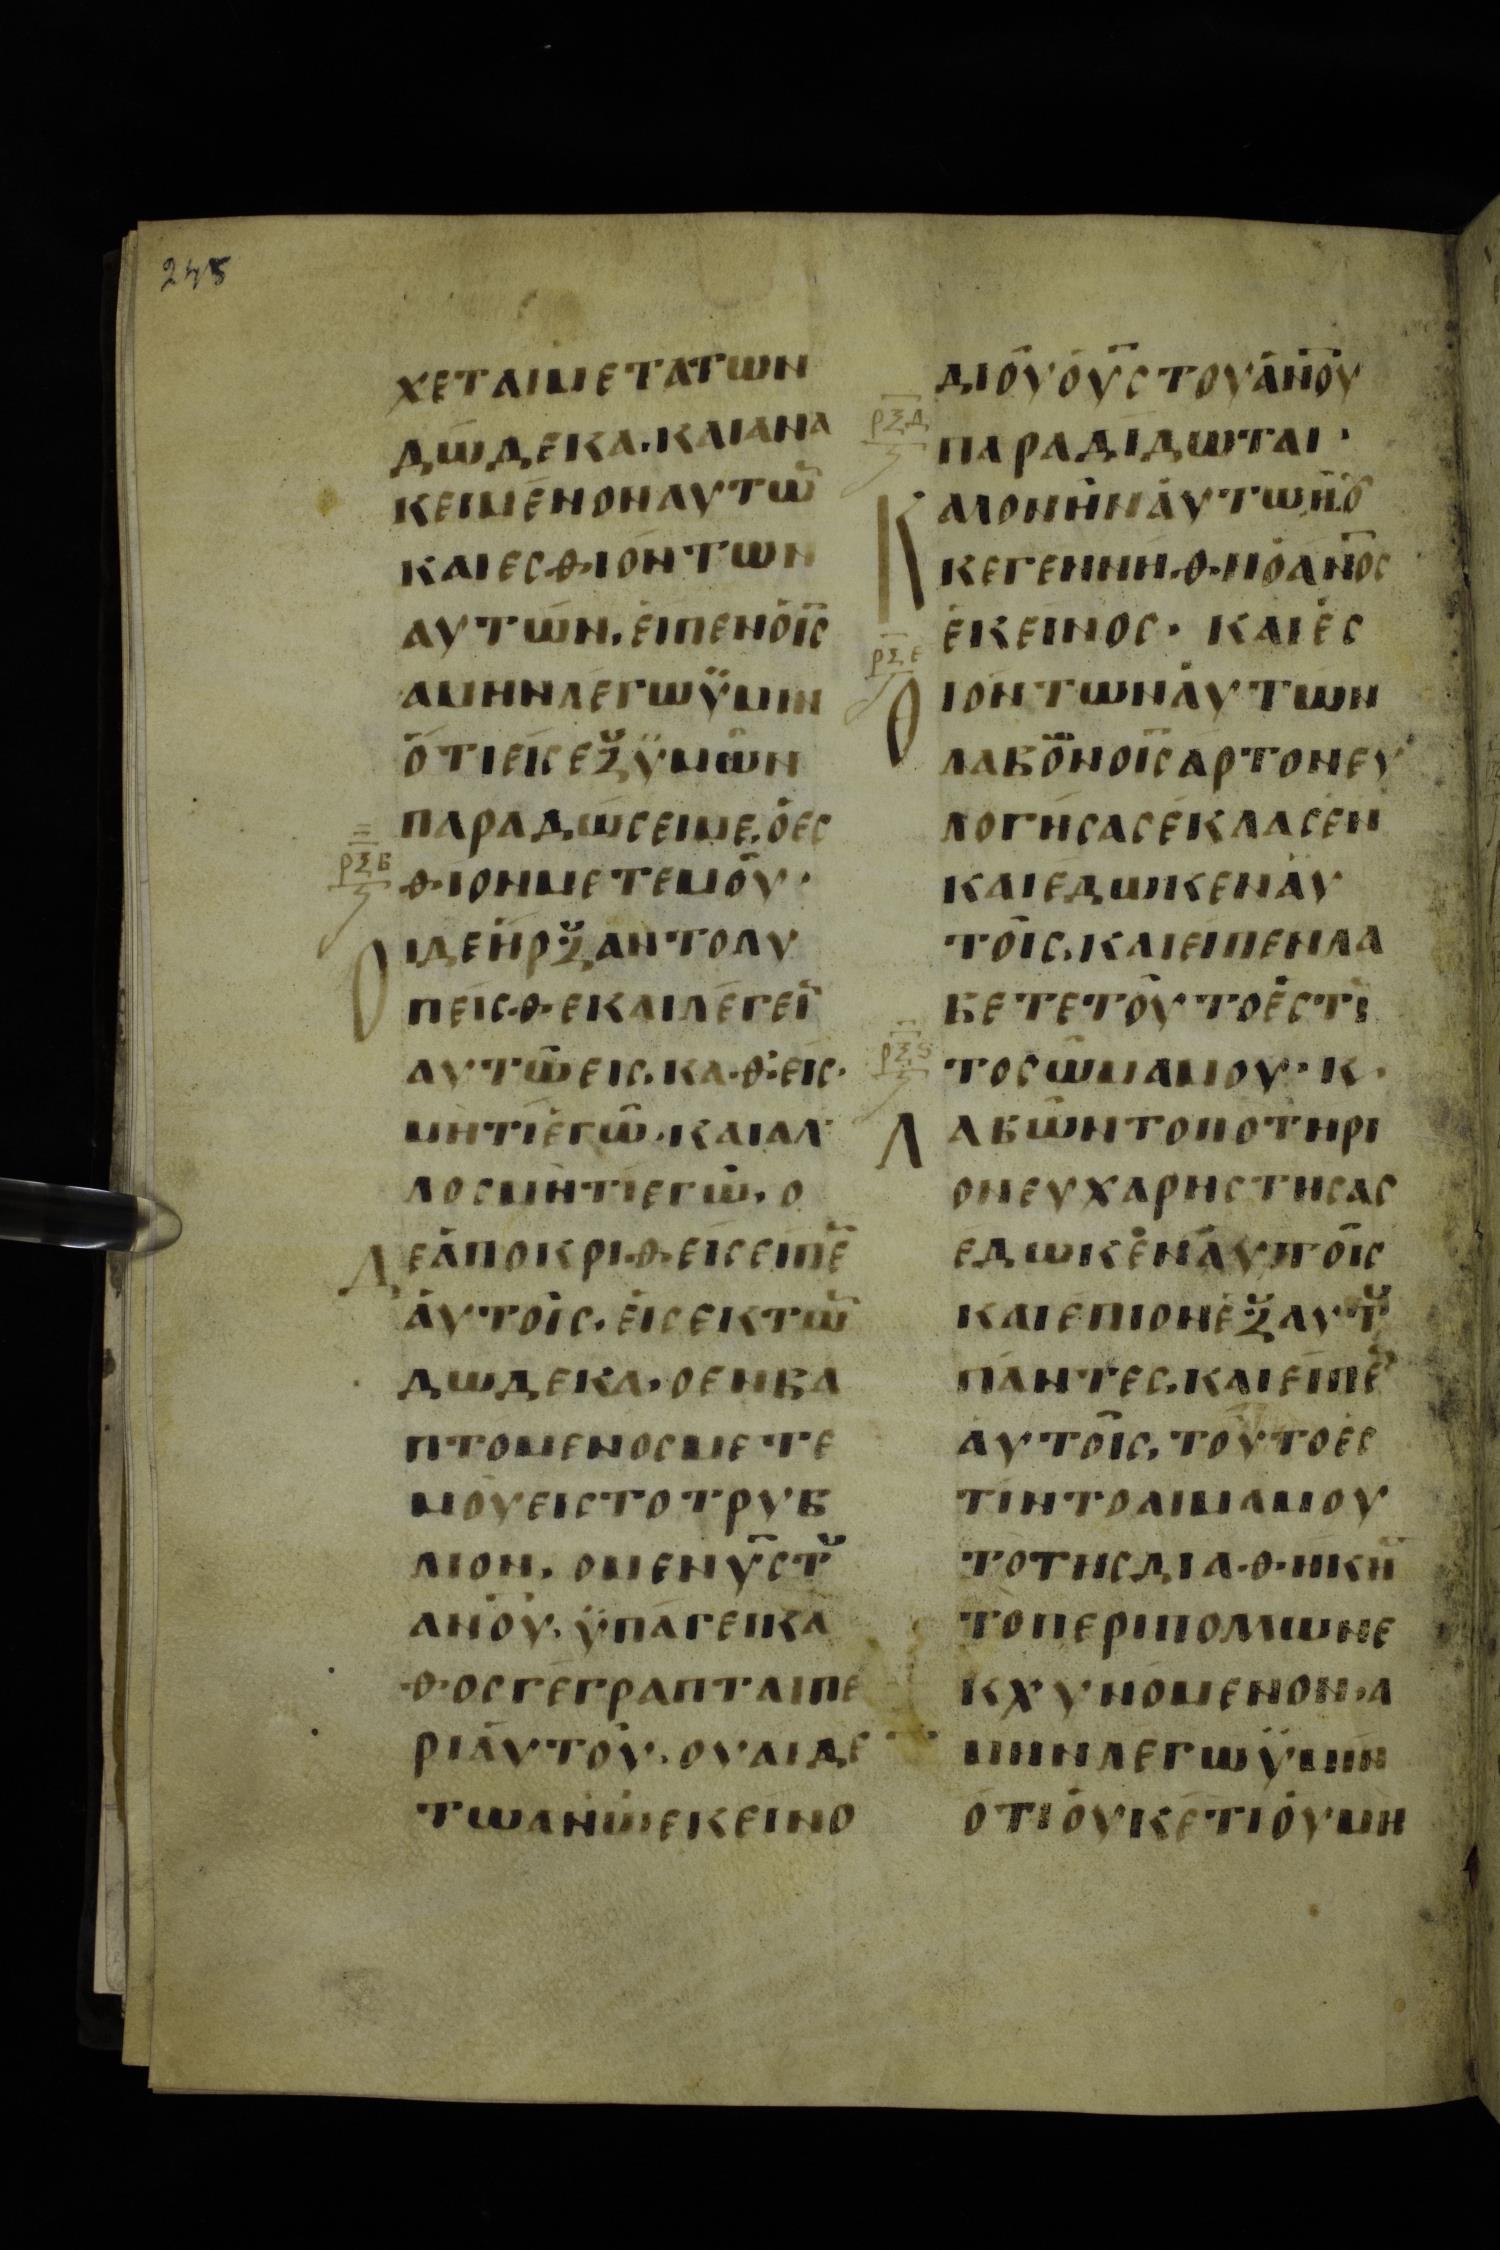 245
ΧΕΤΑΙΜΕΤΑΤΩΝ
ΔΩΔΕΚΑ. ΚΑΙΑΝΑ
ΚΕΙΜΕΝΟΝΑΥΤΩ̅
ΚΑΙΕΣΘΙΟΝΤΩΝ
ΑΥΤΩΝ. ΕΙΠΕΝΟΙ̅Σ
ΑΜΗΝΛΕΓΩΫΜΙΝ
ΟΤΙΕΙΣΕΞΫΜΩΝ
ΠΑΡΑΔΩΣΕΙΜΕ. ΟΕΣ
ΡΞΒ
ΘΙΟΝΜΕΤΕΜΟΥ·
ΟΙΔΕΗΡΞΑΝΤΟΛΥ
ΠΕΙΣΘΕΚΑΙΛΕΓΕΙ̅
ΑΥΤΩΕΙΣ. ΚΑΘΕΙΣ·
ΜΗΤΙΕΓΩ. ΚΑΙΑΛ
ΛΟΣΜΗΤΙΕΓΩ. Ο
ΔΕΑΠΟΚΡΙΘΕΙΣΕΙΠΕ̅
ΑΥΤΟΙΣ. ΕΙΣΕΚΤΩ̅
ΔΩΔΕΚΑ. ΟΕΝΒΑ
ΠΤΟΜΕΝΟΣΜΕΤΕ
ΜΟΥΕΙΣΤΟΤΡΥΒ
ΛΙΟΝ. ΟΜΕΝΥ̅ΣΤȢ
ΑΝ̅ΟΥ. ΫΠΑΓΕΙΚΑ
ΘΟΣΓΕΓΡΑΠΤΑΙΠΕ
ΡΙΑΥΤΟΥ. ΟΥΑΙΔΕ
ΤΩΑΝ̅ΩΕΚΕΙΝΟ
ΔΙΟΥΟΥ̅ΣΤΟΥΑΝ̅ΟΥ
ΡΞΔ
ΠΑΡΑΔΙΔΩΤΑΙ·
ΚΑΛΟΝΗΝΑΥΤΩΗΟ
ΚΕΓΕΝΝΗΘΗΟΑΝ̅ΟΣ
ΕΚΕΙΝΟΣ· ΚΑΙΕΣ
ΡΞΕ
ΘΙΟΝΤΩΝΑΥΤΩΝ
ΛΑΒΟΝΟΙ̅ΣΑΡΤΟΝΕΥ
ΛΟΓΗΣΑΣΕΚΛΑΣΕΝ
ΚΑΙΕΔΩΚΕΝΑΥ
ΤΟΙΣ. ΚΑΙΕΙΠΕΝΛΑ
ΒΕΤΕΤΟΥΤΟΕΣΤΙ
ΡΞϚ
ΤΟΣΩΜΑΜΟΥ· Κ·
ΛΑΒΩΝΤΟΠΟΤΗΡΙ
ΟΝΕΥΧΑΡΗΣΤΗΣΑΣ
ΕΔΩΚΕΝΑΥΤΟΙΣ
ΚΑΙΕΠΙΟΝΕΞΑΥΤȢ
ΠΑΝΤΕΣ. ΚΑΙΕΙΠΕ̅
ΑΥΤΟΙΣ. ΤΟΥΤΟΕΣ
ΤΙΝΤΟΑΙΜΑΜΟΥ
ΤΟΤΗΣΔΙΑΘΗΚΗ̅
ΤΟΠΕΡΙΠΟΛΛΩΝΕ
ΚΧΥΝΟΜΕΝΟΝ. Α
ΜΗΝΛΕΓΩΫΜΙΝ
ΟΤΙΟΥΚΕΤΙΟΥΜΗ